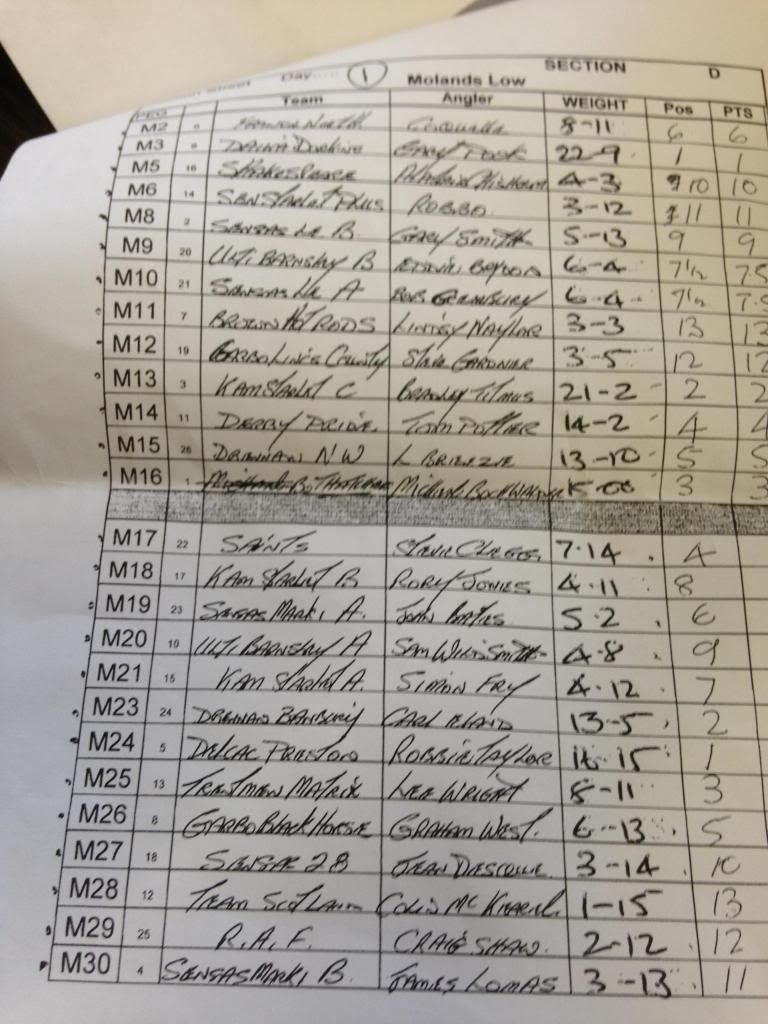 Sheet Day ..... 1 Molands Low SECTION D
PEG Team Angler WEIGHT Pos PTS
M2 8-11 6 6
M3 9 GARY 22-9 1 1
M5 16 SHAKESPEARE 4-3 10 10
M6 14 SEN STARLET PLUS ROBBO 3-12 11 11
M8 2 SENSAS LE B. GARY SMITH 5-13 9 9
M9 20 ULTI BARNSLEY B 6-4 7½ 75
M10 21 SENSAS LE A BOB 6-4 7½
M11 7 BROWN HOT RODS LINDSY NAYLOR 3-3 13 13
M12 19 GARBOLINO COUNTY STEVE GARDNER 3-5 12 12
M13 3 KAM STARLET C BRADLEY TITMUS 21-2 2 2
M14 11 DERBY PRIDE. TOM POTTER 14-2 4 4
M15 26 DRENNAN NW L BREEZE 13-10 5 5
M16 1 MICHAEL BUCKWALTER 15-00 3 3
M17 22 SAINTS STEVE CLEGG. 7.14 4
M18 17 KAM STARLET B RORY JONES 4.11 8
M19 23 SENSAS MARK1 A. JOHN BATES 5.2 6
M20 10 ULTI BARNSLEY A SAM WILDSMITH 4-8 9
M21 15 KAM STARLET A. SIMON FRY 4.12 7
M23 24 DRENNAN BANBURY CARL 13-5 2
M24 5 DELCAC PRESTON ROBBIE TAYLOR 16.15 1
M25 13 TRENTMEN MATRIX LEE WRIGHT 8-11 3
M26 8 GARBO BLACK HORSE GRAHAM WEST. 6-13 5
M27 18 SENSAS 2B SEAN 3-14 10
M28 12 TEAM SCOTLAND COLIN 1-15 13
M29 25 R.A.F. CRAIG SHAW. 2-12 12
M30 4 SENSAS MARK1 B. JAMES LOMAS 3-13 11